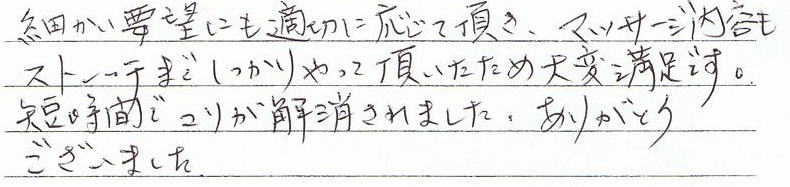 細かい要望にも適切に応じて頂き、マッサージ内容も
ストレッチまでしっかりやって頂いたため大変満足です。
短時間でコリが解消されました。ありがとう
ございました。